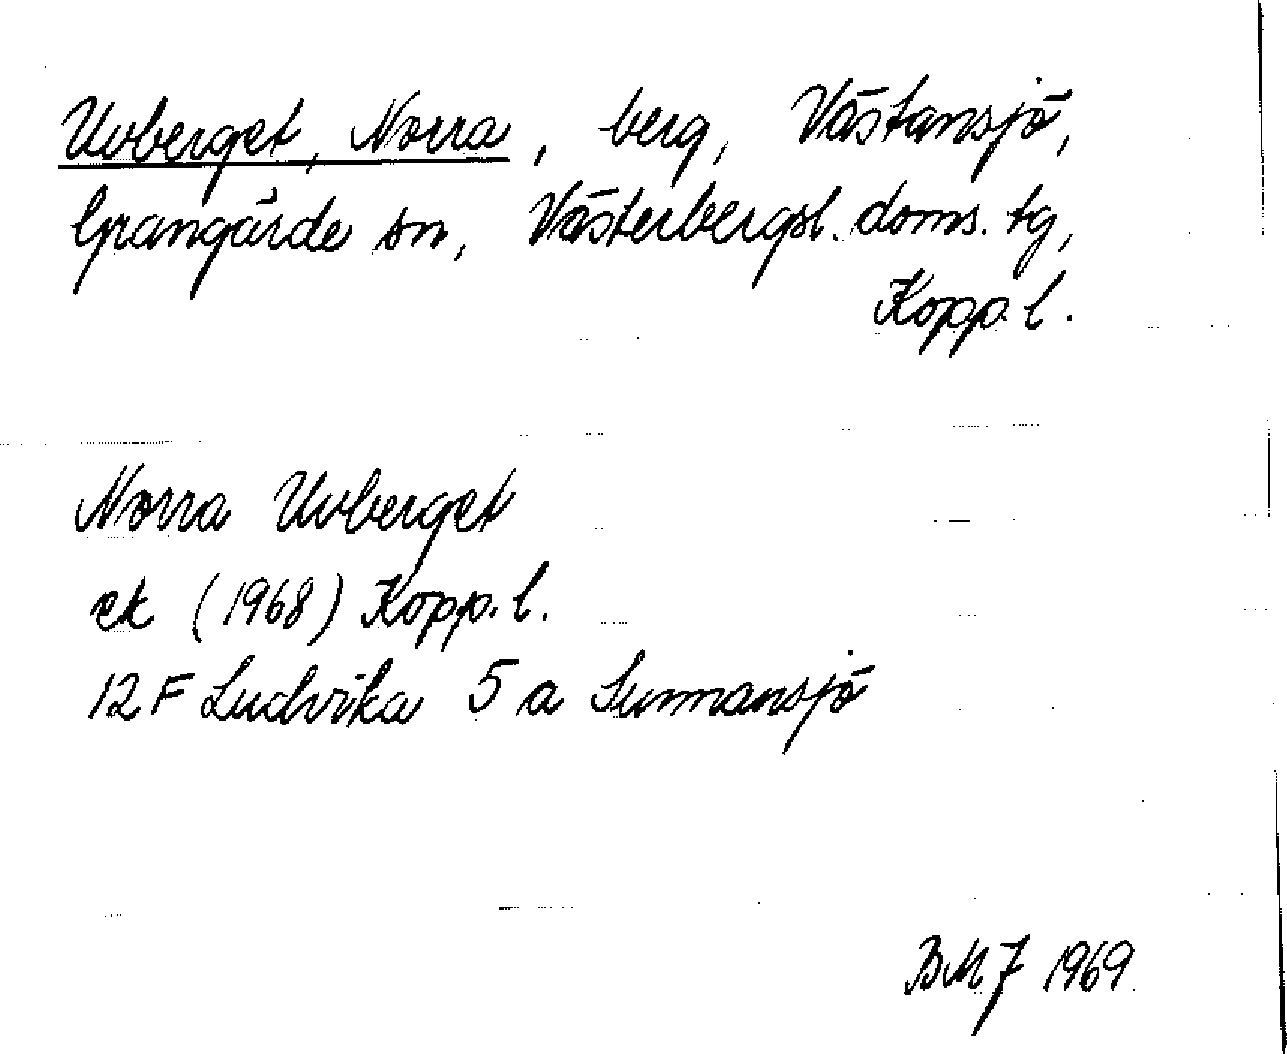 Uvberget, Norra, berg, Västansjö,
Grangärde sn, Västerbergsl. doms. tg,
Kopp. l.
Norra Uvberget
ek (1968) Kopp. l.
12F Ludvika 5 a Sunnansjö
BMJ 1969